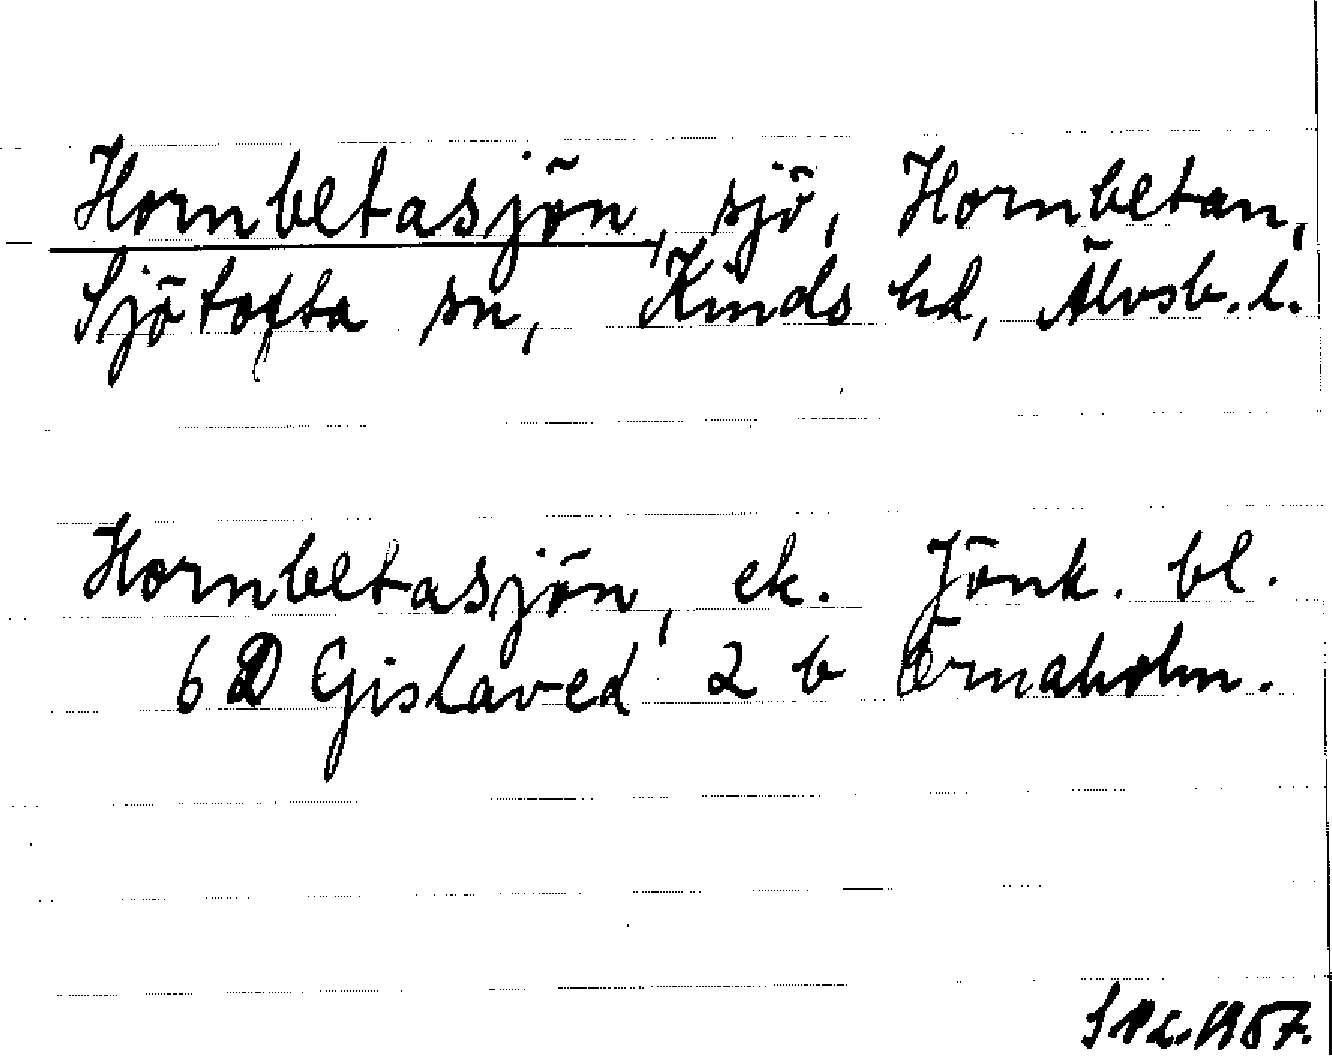 Hornbetasjön, sjö, Hornbetan,
Sjötofta sn, Kinds hd, Älvsb. l.
Hornbetasjön, ek. Jönk. bl.
6 D Gislaved 2 b Örnaholm.
1957.